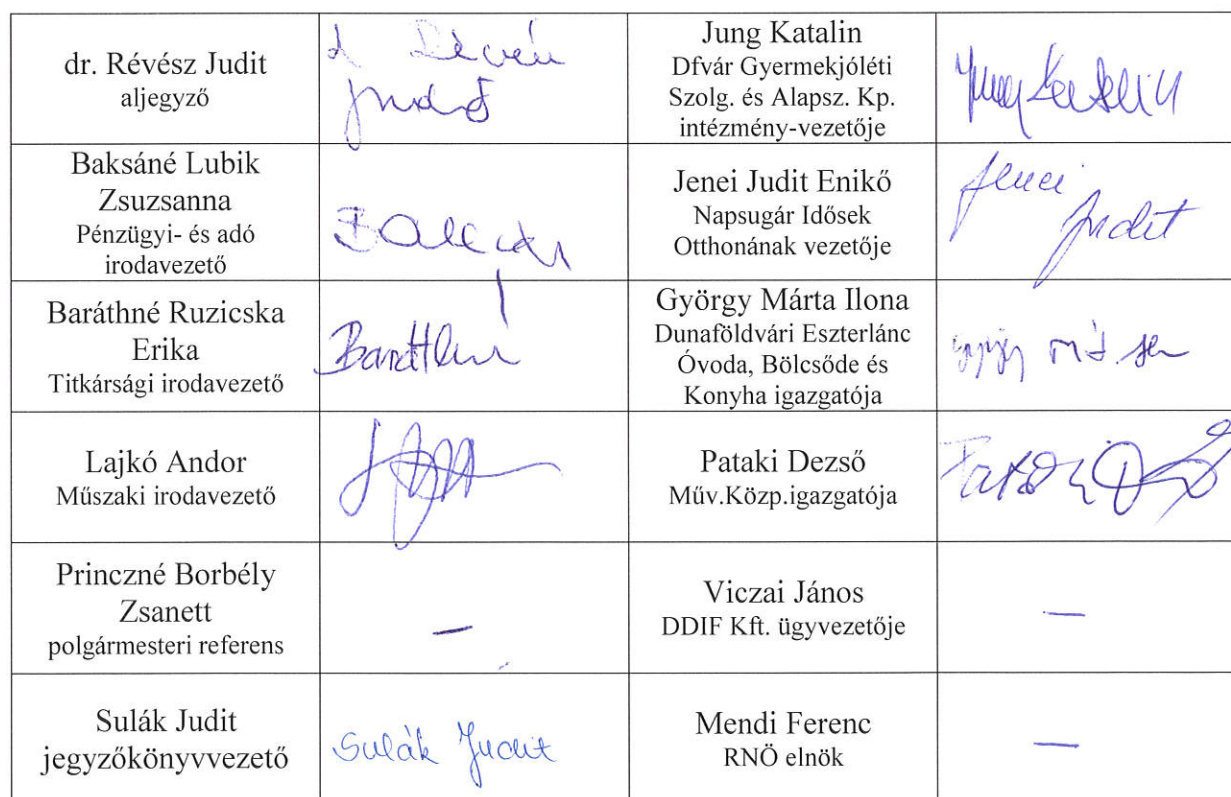 dr. Révész Judit
aljegyző
Jung Katalin
Dfvár Gyermekjóléti
Szolg. és Alapsz. Kp.
intézmény-vezetője
Jung Katalin
Baksáné Lubik
Zsuzsanna
Pénzügyi- és adó
irodavezető
Jenei Judit Enikő
Napsugár Idősek
Otthonának vezetője
Jenei
Judit
Baráthné Ruzicska
Erika
Titkársági irodavezető
György Márta Ilona
Dunaföldvári Eszterlánc
Óvoda, Bölcsőde és
Konyha igazgatója
Lajkó Andor
Műszaki irodavezető
Pataki Dezső
Műv.Közp.igazgatója
Princzné Borbély
Zsanett
polgármesteri referens
–
Viczai János
DDIF Kft. ügyvezetője
–
Sulák Judit
jegyzőkönyvvezető
Sulák Judit
Mendi Ferenc
RNÖ elnök
–